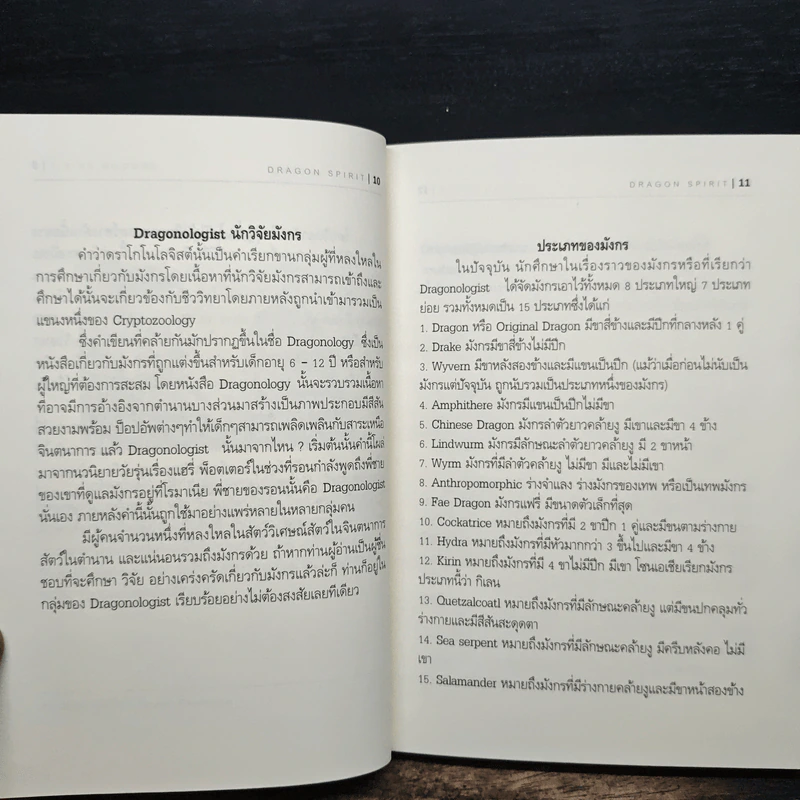 DRAGON SPIRIT | 10
Dragonologist นักวิจัยมังกร
คำว่าดราโกโนโลจิสต์นั้นเป็นคำเรียกขานกลุ่มผู้ที่หลงใหลใน
การศึกษาเกี่ยวกับมังกรโดยเนื้อหาที่นักวิจัยมังกรสามารถเข้าถึงและ
ศึกษาได้นั้นจะเกี่ยวข้องกับชีววิทยาโดยภายหลังถูกนำเข้ามารวมเป็น
แขนงหนึ่งของ Cryptozoology
ซึ่งคำเขียนที่คล้ายกันมักปรากฏขึ้นในชื่อ Dragonology ซึ่งเป็น
หนังสือเกี่ยวกับมังกรที่ถูกแต่งขึ้นสำหรับเด็กอายุ 6 - 12 ปี หรือสำหรับ
ผู้ใหญ่ที่ต้องการสะสม โดยหนังสือ Dragonology นั้นจะรวบรวมเนื้อหา
ที่อาจมีการอ้างอิงจากตำนานบางส่วนมาสร้างเป็นภาพประกอบมีสีสัน
สวยงามพร้อม ป็อปอัพต่างๆทำให้เด็กๆสามารถเพลิดเพลินกับสาระเหนือ
จินตนาการ แล้ว Dragonologist นั้นมาจากไหน ? เริ่มต้นนั้นคำนี้โผล่
มาจากนวนิยายวัยรุ่นเรื่องแฮรี่ พ็อตเตอร์ในช่วงที่รอนกำลังพูดถึงพี่ชาย
ของเขาที่ดูแลมังกรอยู่ที่โรมาเนีย พี่ชายของรอนนั้นคือ Dragonologist
นั่นเอง ภายหลังคำนี้นั้นถูกใช้มาอย่างแพร่หลายในหลายกลุ่มคน
มีผู้คนจำนวนหนึ่งที่หลงใหลในสัตว์วิเศษณ์สัตว์ในจินตนาการ
สัตว์ในตำนาน และแน่นอนรวมถึงมังกรด้วย ถ้าหากท่านผู้อ่านเป็นผู้ชื่น
ชอบที่จะศึกษา วิจัย อย่างเคร่งครัดเกี่ยวกับมังกรแล้วล่ะก็ ท่านก็อยู่ใน
กลุ่มของ Dragonologist เรียบร้อยอย่างไม่ต้องสงสัยเลยทีเดียว
DRAGON SPIRIT | 11
ประเภทของมังกร
ในปัจจุบัน นักศึกษาในเรื่องราวของมังกรหรือที่เรียกว่า
Dragonologist ได้จัดมังกรเอาไว้ทั้งหมด 8 ประเภทใหญ่ 7 ประเภท
ย่อย รวมทั้งหมดเป็น 15 ประเภทซึ่งได้แก่
1. Dragon หรือ Original Dragon มีขาสี่ข้างและมีปีกที่กลางหลัง 1 คู่
2. Drake มังกรมีขาสี่ข้างไม่มีปีก
3. Wyvern มีขาหลังสองข้างและมีแขนเป็นปีก (แม้ว่าเมื่อก่อนไม่นับเป็น
มังกรแต่ปัจจุบัน ถูกนับรวมเป็นประเภทหนึ่งของมังกร)
4. Amphithere มังกรมีแขนเป็นปีกไม่มีขา
5. Chinese Dragon มังกรลำตัวยาวคล้ายงู มีเขาและมีขา 4 ข้าง
6. Lindwurm มังกรมีลักษณะลำตัวยาวคล้ายงู มี 2 ขาหน้า
7. Wyrm มังกรที่มีลำตัวคล้ายงู ไม่มีขา มีและไม่มีเขา
8. Anthropomorphic ร่างจำแลง ร่างมังกรของเทพ หรือเป็นเทพมังกร
9. Fae Dragon มังกรแฟรี่ มีขนาดตัวเล็กที่สุด
10. Cockatrice หมายถึงมังกรที่มี 2 ขาปีก 1 คู่และมีขนตามร่างกาย
11. Hydra หมายถึงมังกรที่มีหัวมากกว่า 3 ขึ้นไปและมีขา 4 ข้าง
12. Kirin หมายถึงมังกรที่มี 4 ขาไม่มีปีก มีเขา โซนเอเชียเรียกมังกร
ประเภทนี้ว่า กิเลน
13. Quetzalcoatl หมายถึงมังกรที่มีลักษณะคล้ายงู แต่มีขนปกคลุมทั่ว
ร่างกายและมีสีสันสะดุดตา
14. Sea serpent หมายถึงมังกรที่มีลักษณะคล้ายงู มีครีบหลังคอ ไม่มี
เขา
15. Salamander หมายถึงมังกรที่มีร่างกายคล้ายงูและมีขาหน้าสองข้าง